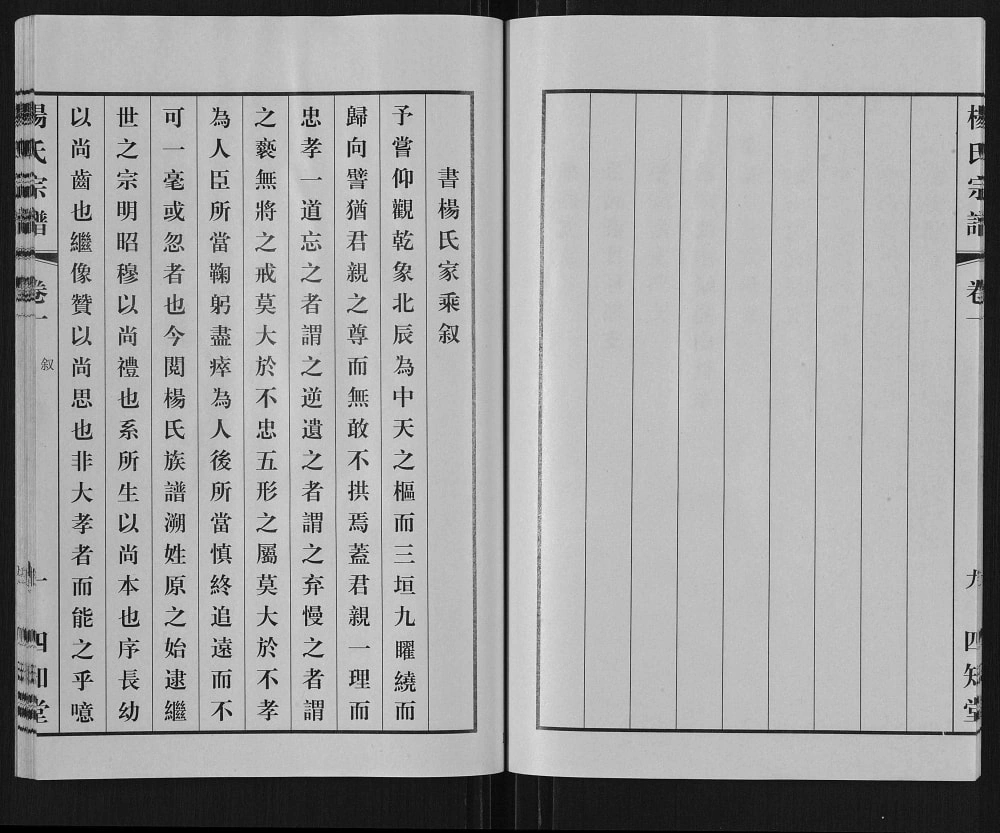 楊氏宗譜 卷一 九 四知堂
書楊氏家乘叙
予嘗仰觀乾象北辰為中天之樞而三垣九曜繞而
歸向譬猶君親之尊而無敢不拱焉蓋君親一理而
忠孝一道忘之者謂之逆遺之者謂之弃慢之者謂
之褻無將之戒莫大於不忠五形之屬莫大於不孝
為人臣所當鞠躬盡瘁為人後所當慎終追遠而不
可一毫或忽者也今閱楊氏族譜溯姓原之始逮繼
世之宗明昭穆以尚禮也系所生以尚本也序長幼
以尚齒也繼像贊以尚思也非大孝者而能之乎噫
楊氏宗譜 卷一 叙 一 四知堂